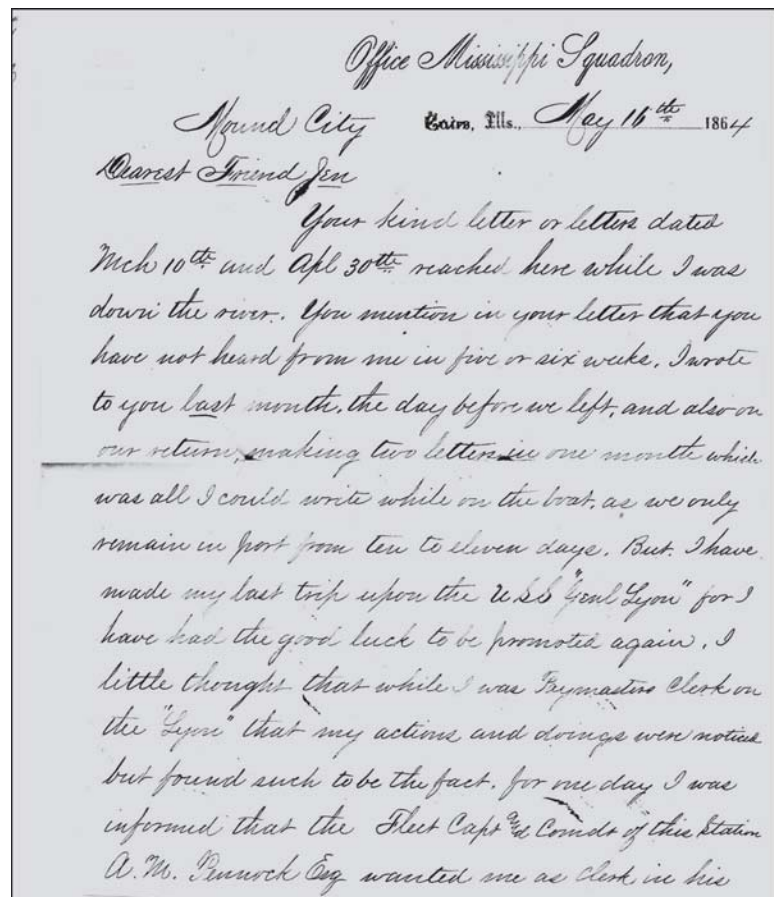 Office Mississippi Squadron,
Mound City Cairo, Ills., May 16th 1864
Dearest Friend Jen
Your kind letter or letters dated
Mch 10th and Apl 30th reached here while I was
down the river. You mention in your letter that you
have not heard from me in five or six weeks. I wrote
to you last month, the day before we left, and also on
our return, making two letters in one month which
was all I could write while on the boat, as we only
remain in port from ten to eleven days. But. I have
made my last trip upon the U.S.S "Genl Lyon" for I
have had the good luck to be promoted again. I
little thought that while I was Paymasters Clerk on
the "Lyon" that my actions and doings were noticed
but found such to be the fact. for one day I was
informed that the Fleet Capt and Comdt of this Station
A. M. Pennock Esq wanted me as Clerk in his